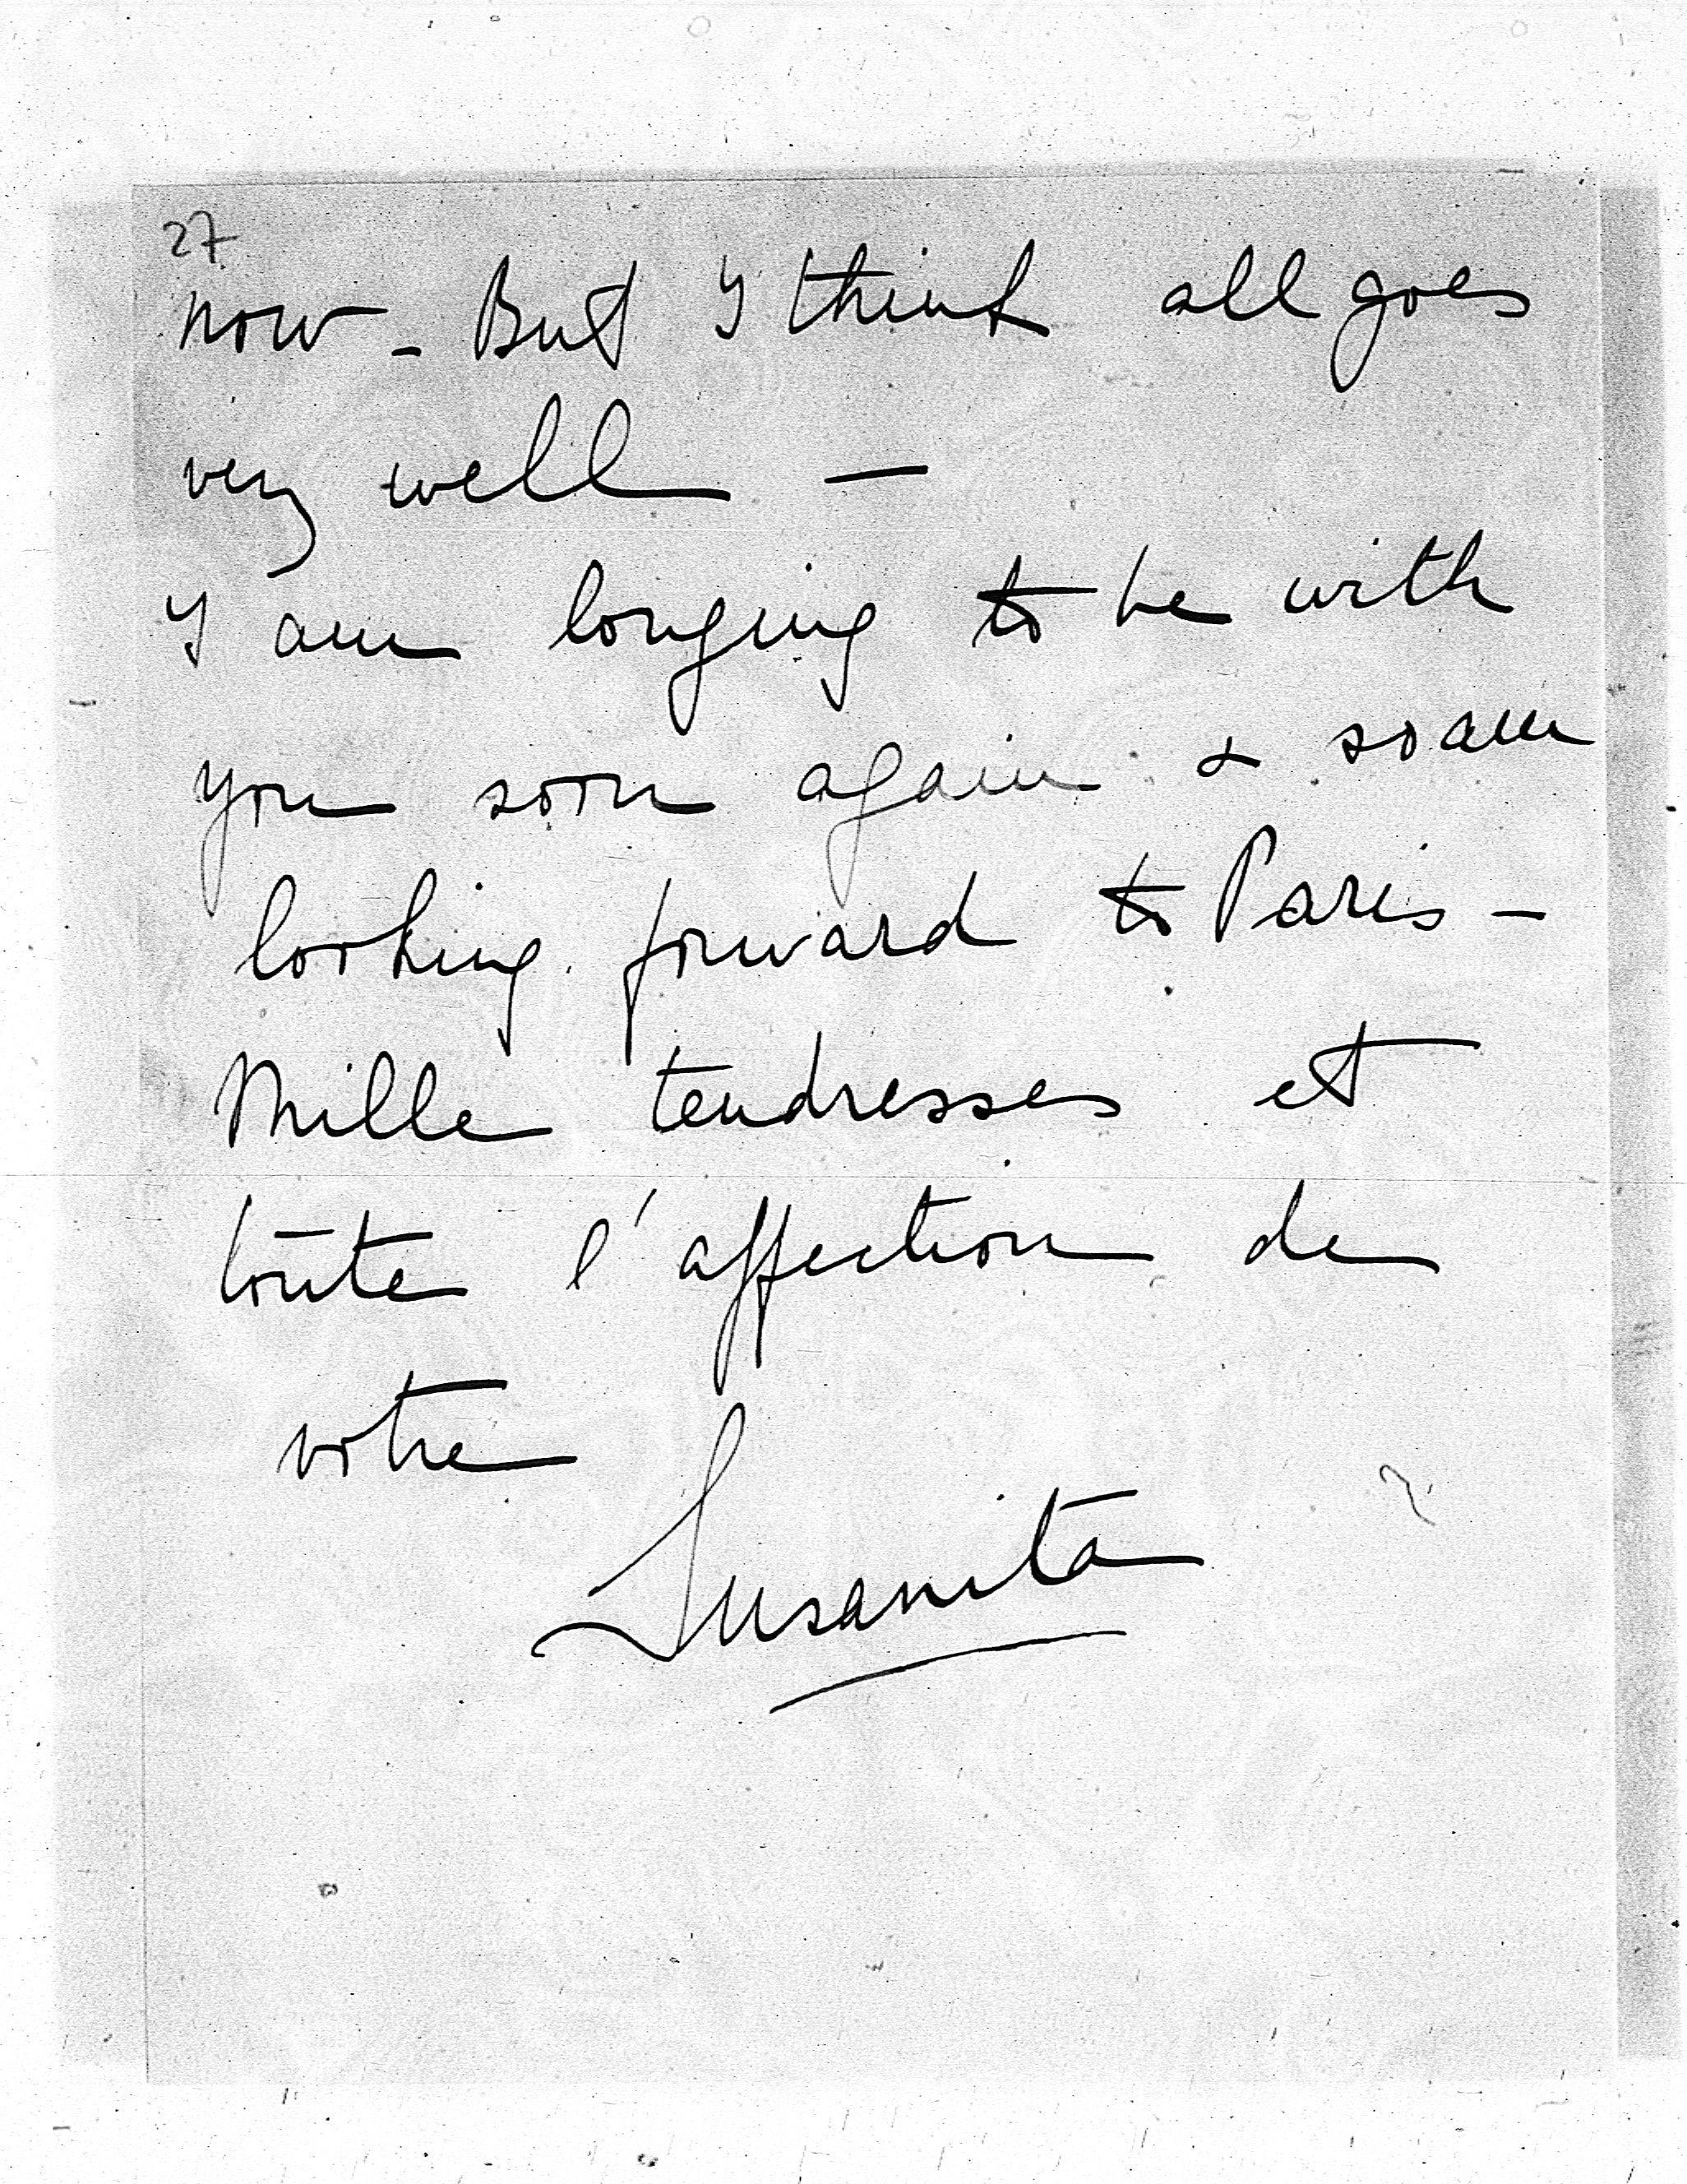 27
now - But I think all goes
very well -
I am longing to be with
you soon again & so am
looking forward to Paris -
Mille tendresses et
toute l'affection de
votre
Susanita